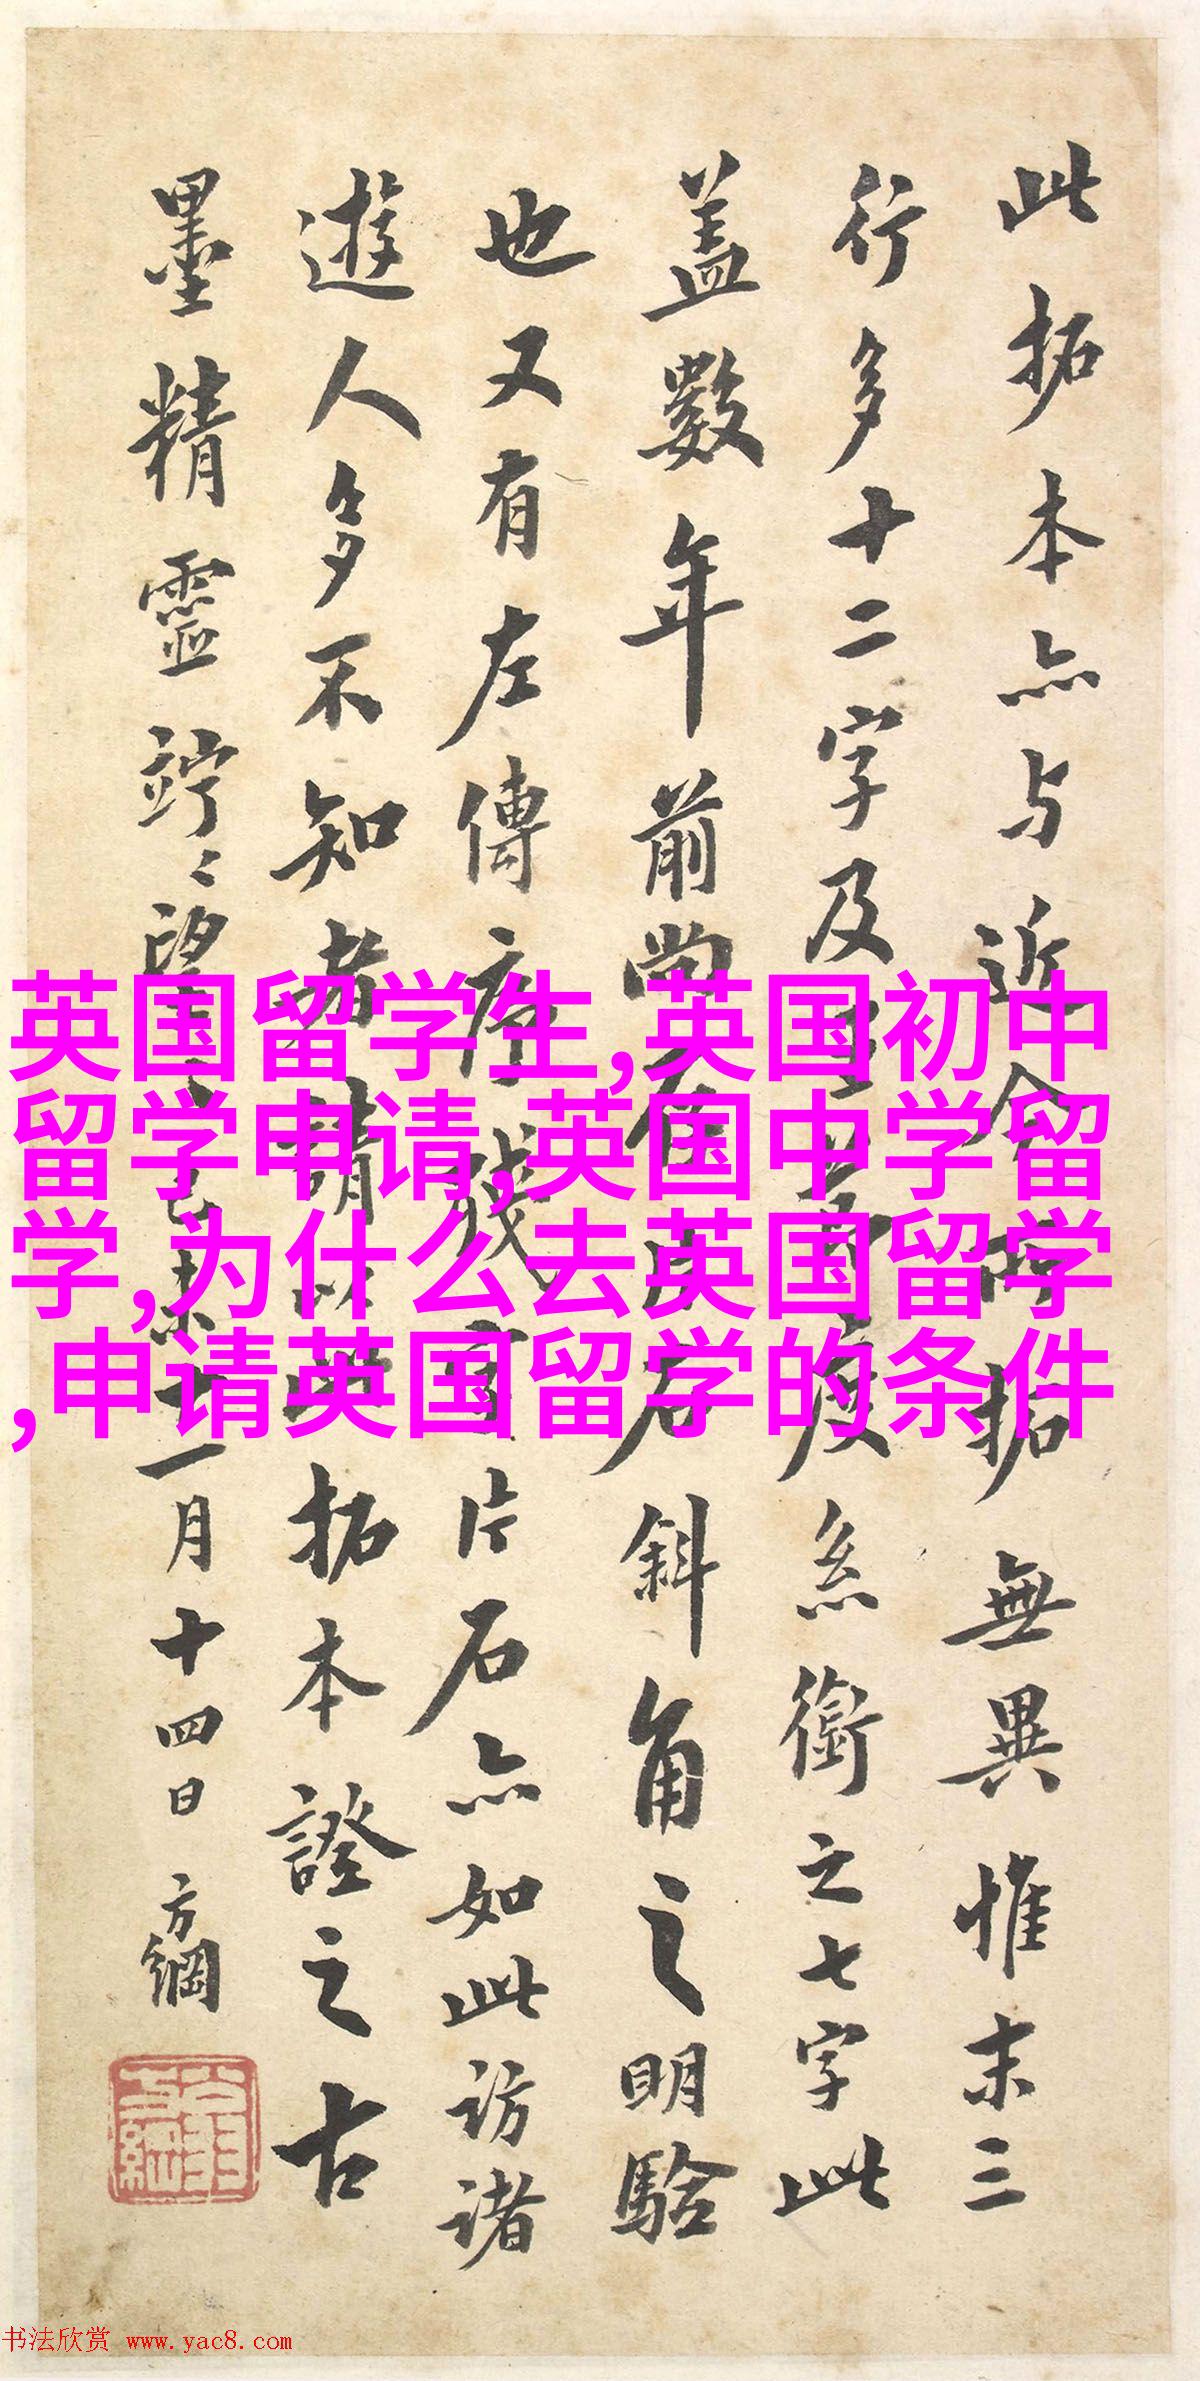 此拓本亦与近今所拓無異惟末三
行多十二字及
度系銜之七字此
蓋數年前尚在
石斜角之明驗
也又有左傳序殘
片石亦如此访诸
遊人多不知者
拓本證之古
墨精靈竚〻望
月十四日方綱
英国留学生,英国初中
留学申请,英国中学留
学,为什么去英国留学
,申请英国留学的条件
书法欣赏 www.yac8.com